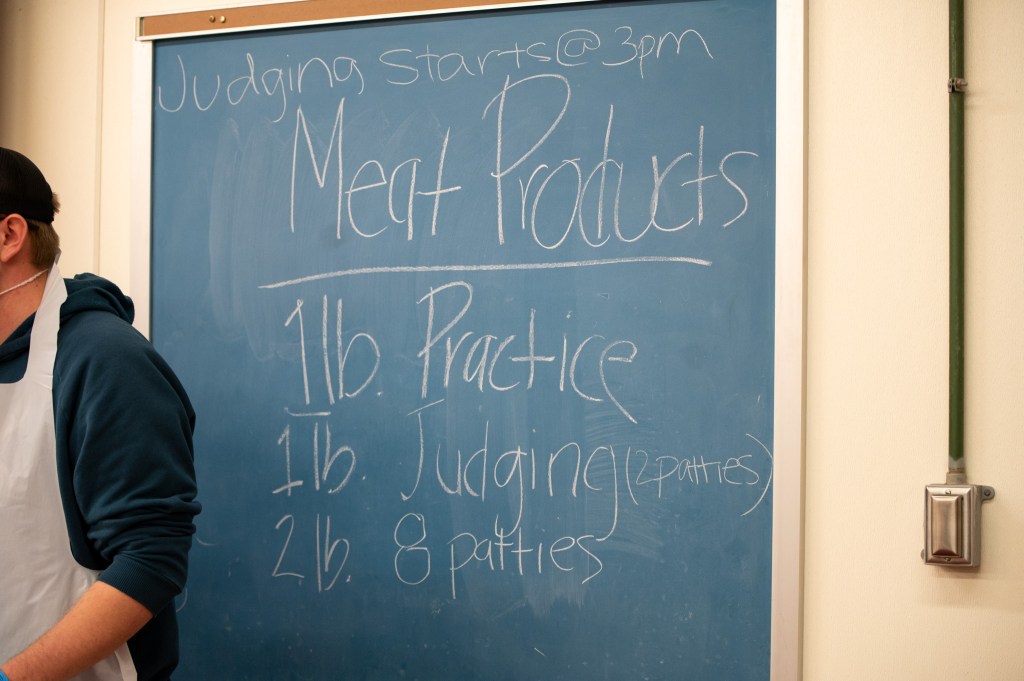 Judging starts @ 3pm
Meat Products
1lb. Practice
1lb. Judging (2 patties)
2lb. 8 patties